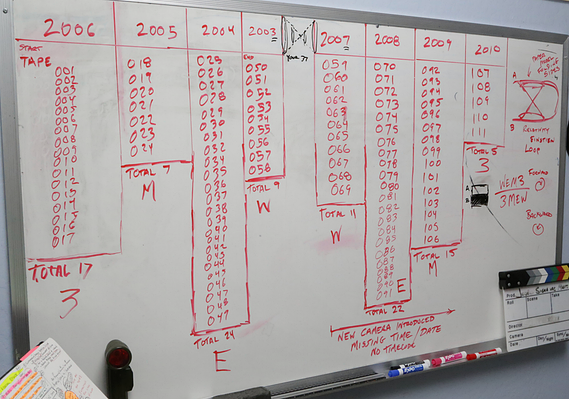 2006
START
TAPE
001
002
003
004
005
006
007
008
009
010
011
012
013
014
015
016
017
TOTAL 17
3
2005
018
019
020
021
022
023
024
TOTAL 7
M
2004
025
026
027
028
029
030
031
032
033
034
035
036
037
038
039
040
041
042
043
044
045
046
047
048
049
TOTAL 24
E
2003
END
050
051
052
053
054
055
056
057
058
TOTAL 9
W
2007
059
060
061
062
063
064
065
066
067
068
069
TOTAL 11
W
2008
070
071
072
073
074
075
076
077
078
079
080
081
082
083
084
085
086
087
088
089
090
091
E
TOTAL 22
2009
092
093
094
095
096
097
098
099
100
101
102
103
104
105
106
TOTAL 15
M
2010
107
108
109
110
111
TOTAL 5
3
NEW CAMERA INTRODUCED
MISSING TIME/DATE
NO TIMECODE
A
B
RELATIVITY
EINSTEIN
LOOP
FORWARD
A
B
WEM3
3MEW
BACKWARD